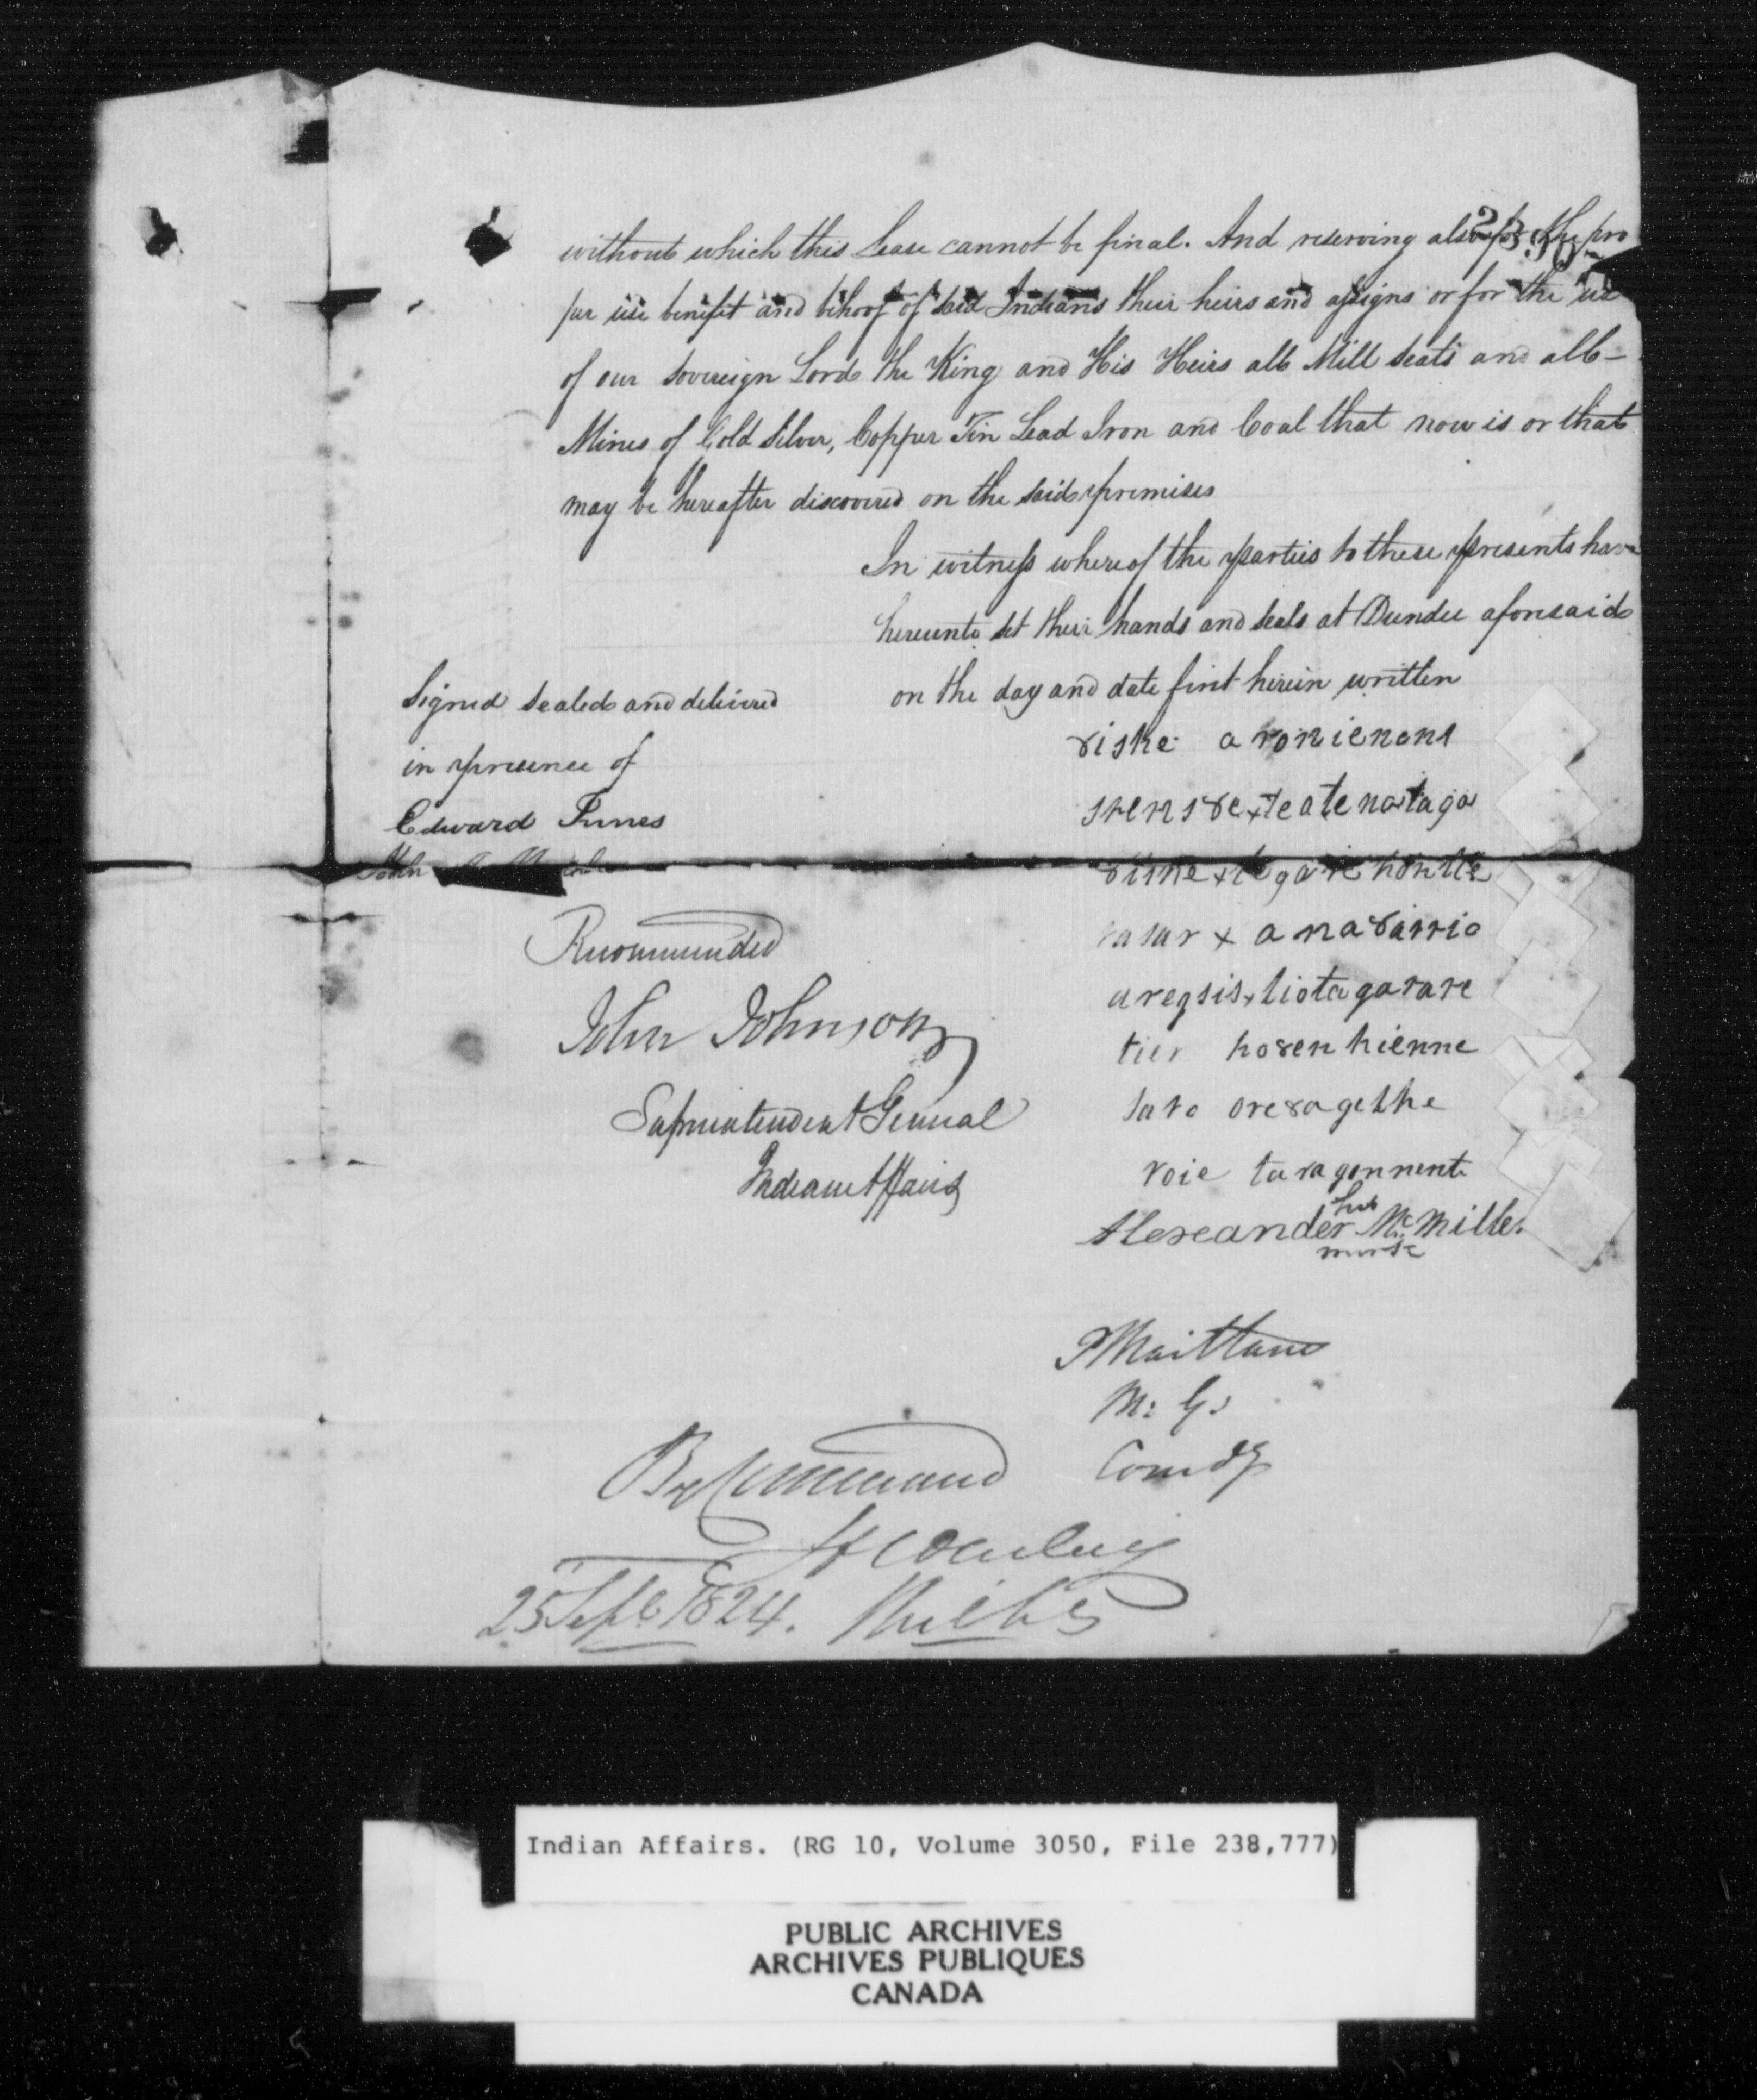 without which this Lease cannot be final. And reserving also for the pro
per use benefit and behoof of said Indians their heirs and assigns or for the use
of our Sovereign Lord the King and His Heirs all Mill seats and all
Mines of Gold Silver, Copper Tin Lead Iron and Coal that now is or that
may be hereafter discovered on the said premises
In witness whereof the parties to these presents have
hereunto set their hands and seals at Dundee aforesaid
on the day and date first herein written
Signed sealed and delivered
in presence of
Edward
John
Recommended
John Johnson
Superintendent General
Indian Affairs
riske aronienens
tegarehontle
x anasario
tiotagarare
tier hosenhienne
saro oresagethe
roie taragonnente
Alexeander his McMille
mark
PMaitland
M: G.
Comdg
By Command
HCDarling
25 Sept 1824.
Indian Affairs. (RG 10, Volume 3050, File 238,777)
PUBLIC ARCHIVES
ARCHIVES PUBLIQUES
CANADA